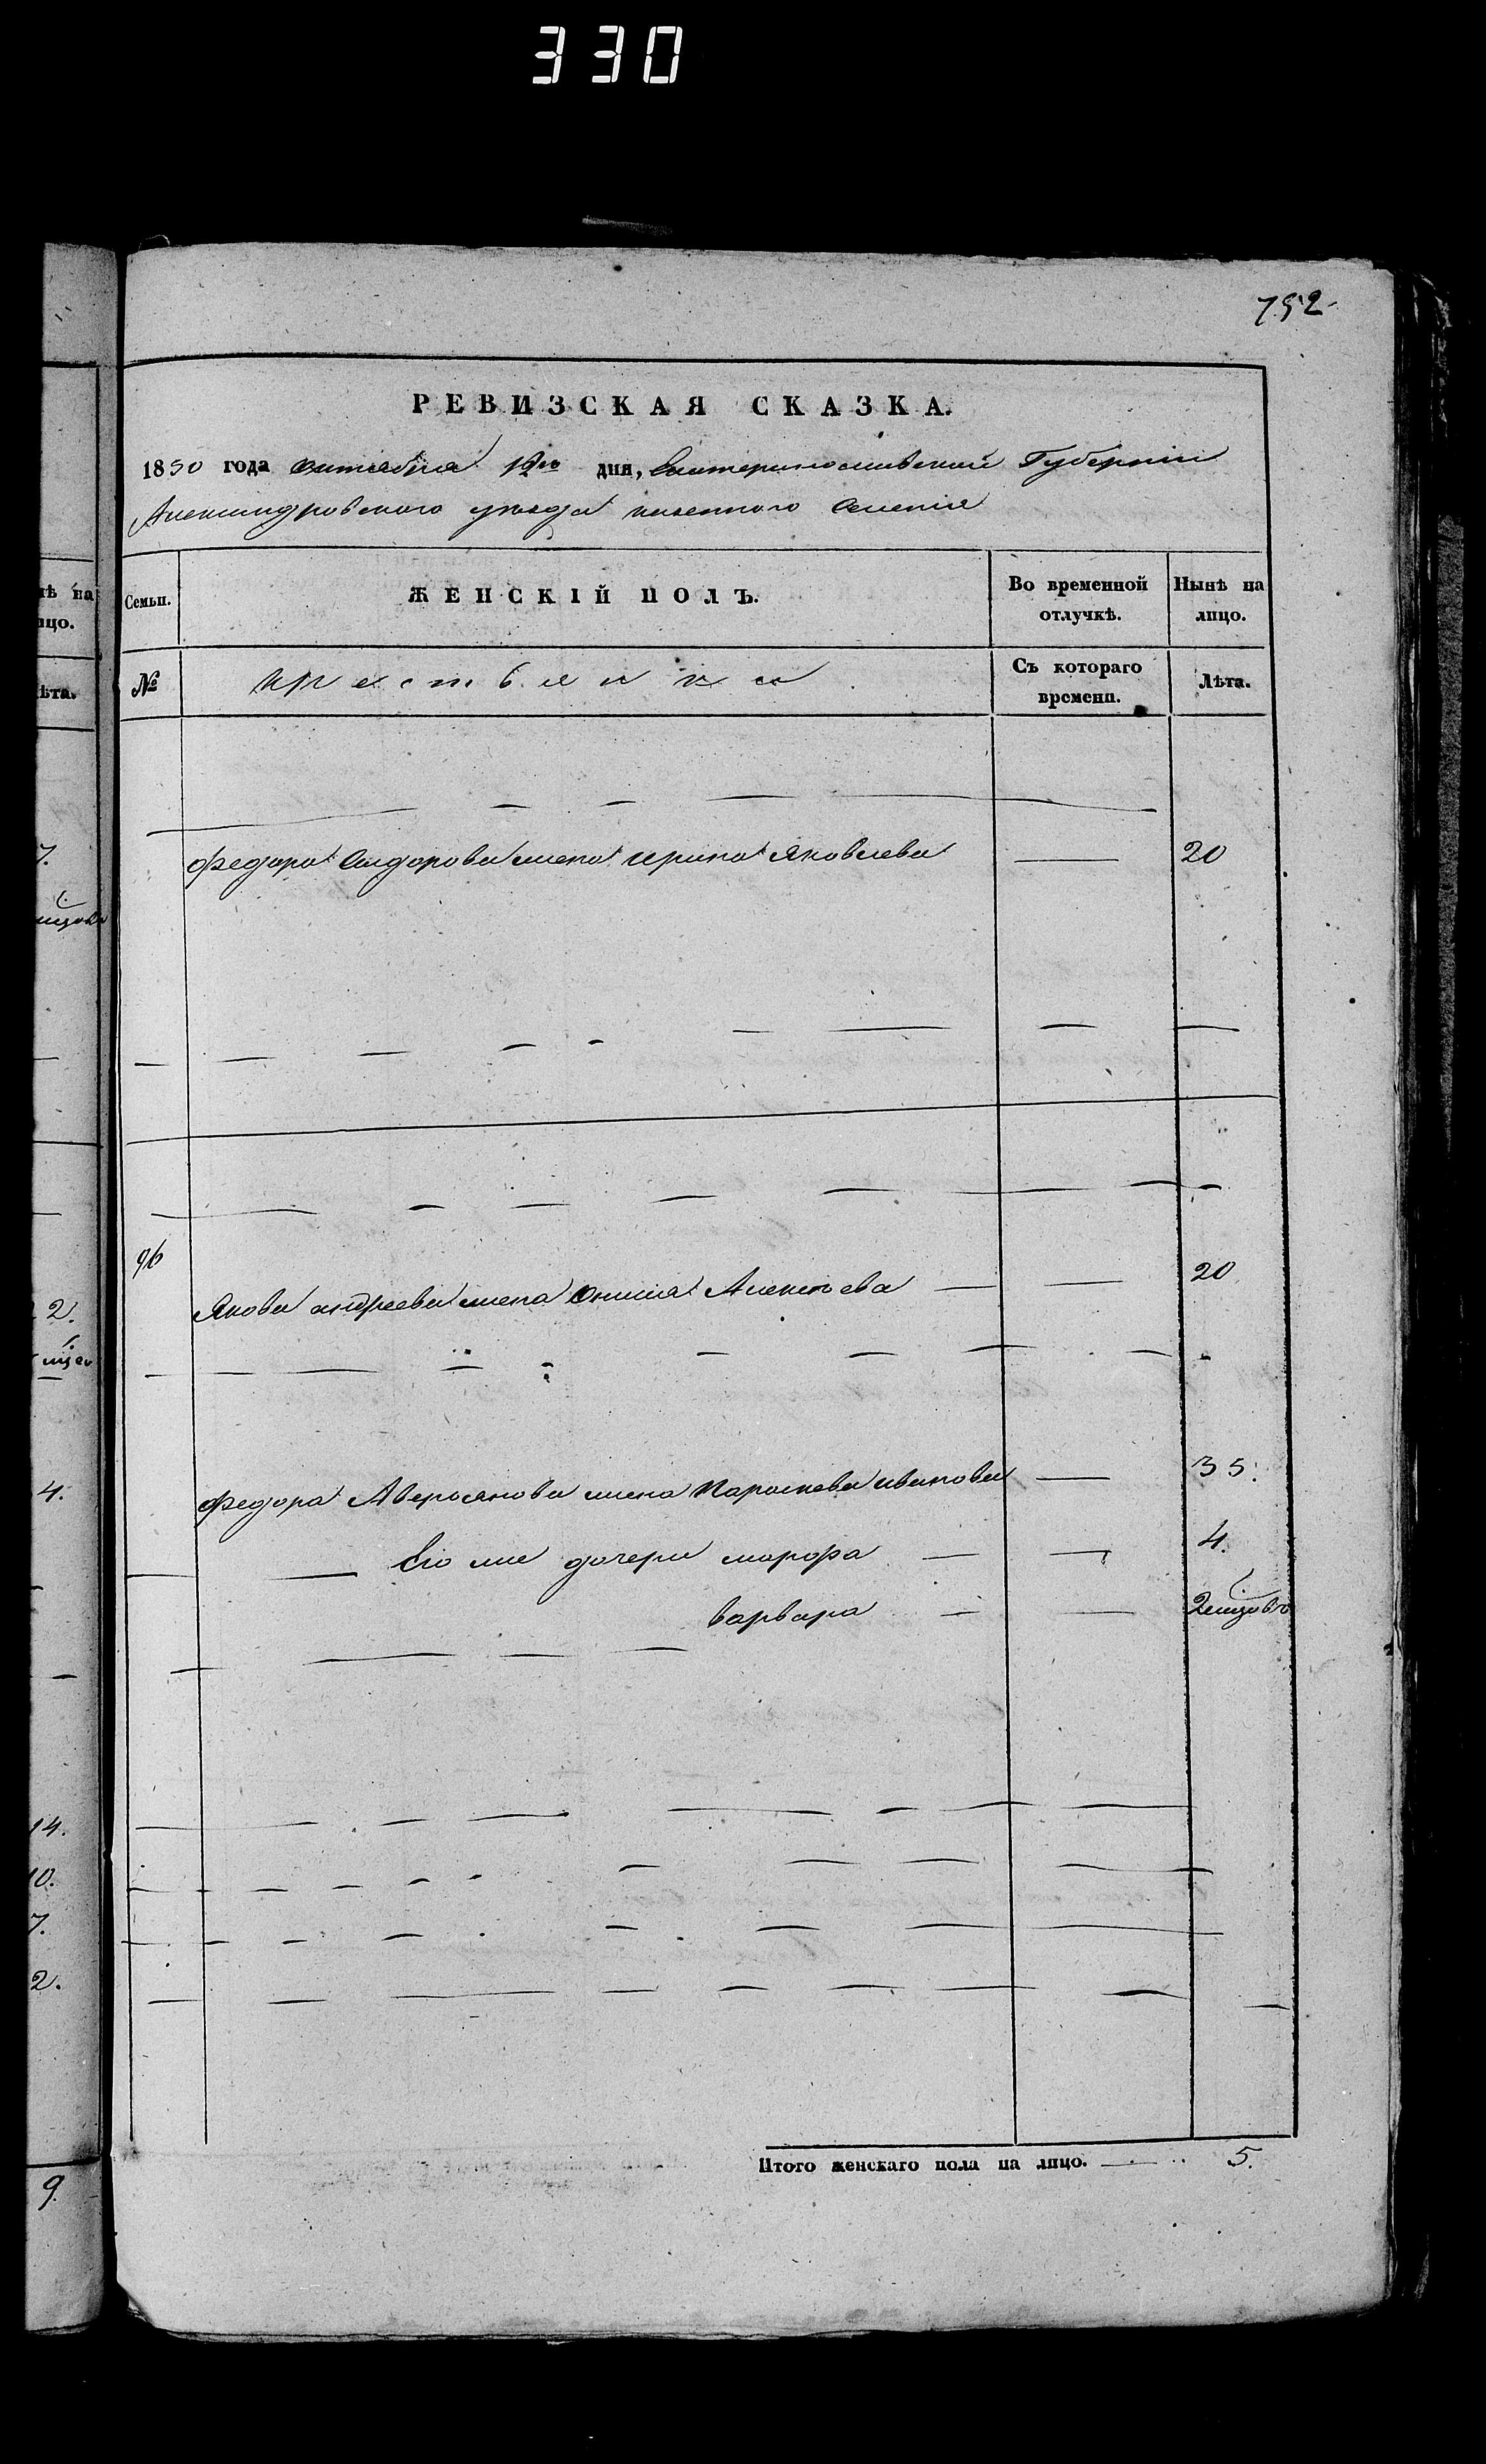 330
752
РЕВИЗСКАЯ СКАЗКА.
1850 года октября 12го дня, Екатеринославской Губернiи
Александровского уезда казенного Селенiя
нѣ на
лицо.
лѣта.
Семьи.
ЖЕНСКIЙ ПОЛЪ.
Во временной отлучкѣ.
Нынѣ на лицо.
№
крестьянки
Съ котораго времени.
Лѣта.
7.
федора Сидорова жена ирина Яковлева 20
96
Якова андреева жена Алексѣева 20
2.
федора Аверьянова жена Параскева иванова 35.
4.
Его же дочери марфа 4.
варвара 2
14.
10.
7.
2.
Итого женскаго пола на лицо. 5.
9.